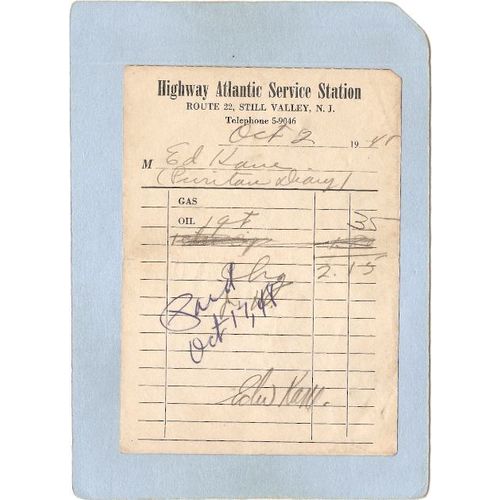 Highway Atlantic Service Station
ROUTE 22, STILL VALLEY, N. J.
Telephone 5-9046
Oct 2 19 48
M Ed Kane
(Puritan Diary)
GAS
OIL 1 qt 35
2.15
Paid
Oct 17, 48
Kane.